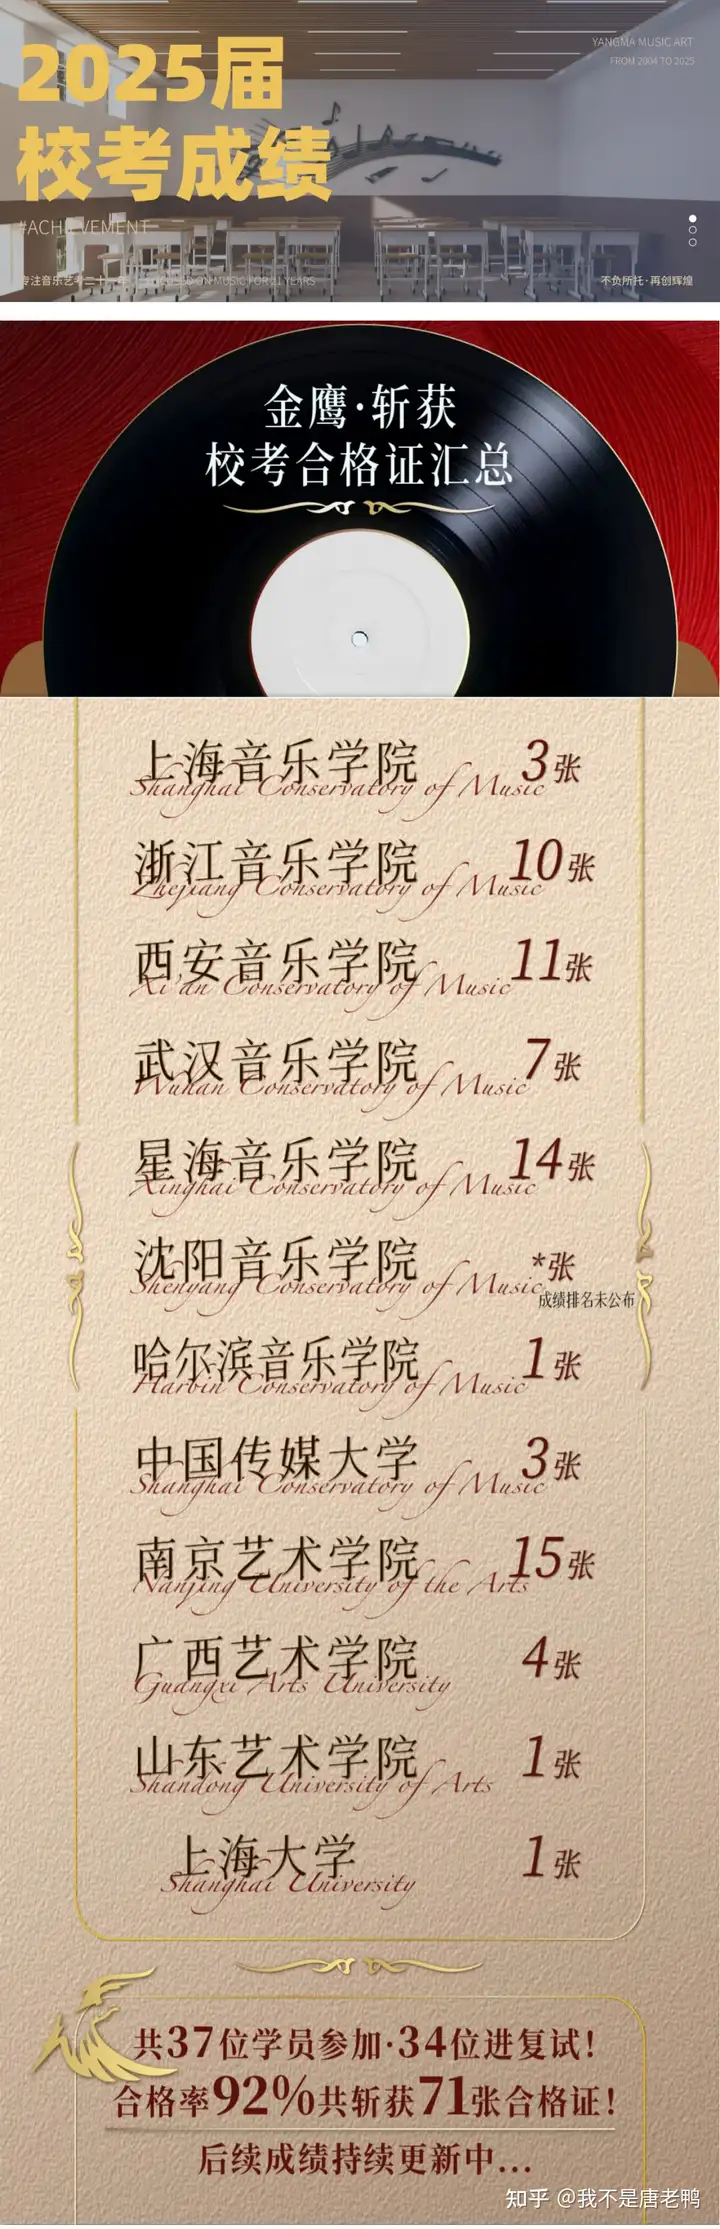 2025届
YANGMA MUSIC ART
FROM 2004 TO 2025
校考成绩
#ACHIEVEMENT
专注音乐艺考二十一年 FOCUSED ON MUSIC FOR 21 YEARS
不负所托·再创辉煌
金鹰·斩获
校考合格证汇总
上海音乐学院 3张
Shanghai Conservatory of Music
浙江音乐学院 10张
Zhejiang Conservatory of Music
西安音乐学院 11张
Xi'an Conservatory of Music
武汉音乐学院 7张
Wuhan Conservatory of Music
星海音乐学院 14张
Xinghai Conservatory of Music
沈阳音乐学院 *张
Shenyang Conservatory of Music
成绩排名未公布
哈尔滨音乐学院 1张
Harbin Conservatory of Music
中国传媒大学 3张
Shanghai Conservatory of Music
南京艺术学院 15张
Nanjing University of the Arts
广西艺术学院 4张
Guangxi Arts University
山东艺术学院 1张
Shandong University of Arts
上海大学 1张
Shanghai University
共37位学员参加·34位进复试!
合格率92%共斩获71张合格证!
后续成绩持续更新中...
知乎 @我不是唐老鸭